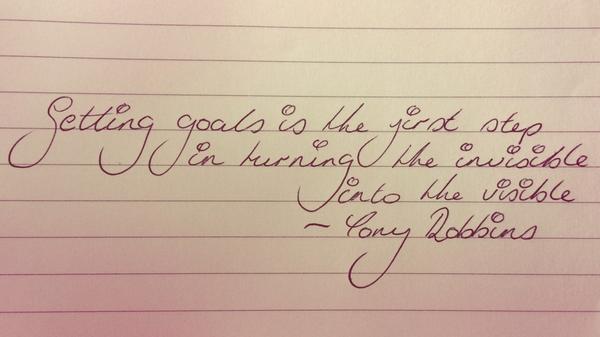 Setting goals is the first step
in turning the invisible
into the visible
~ Tony Robbins